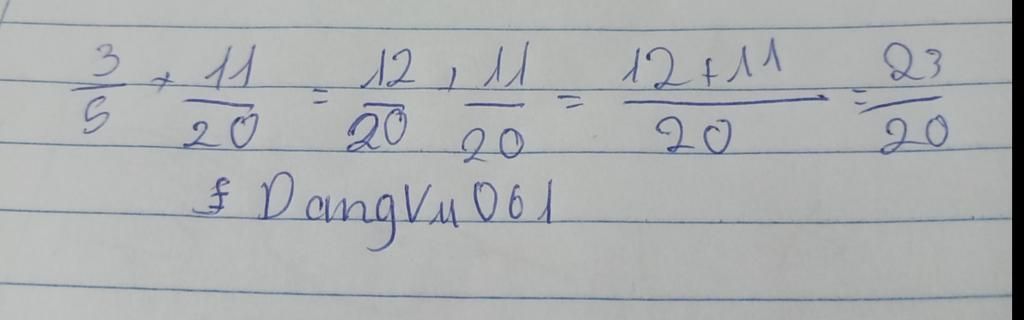 3/5 + 11/20 = 12/20 + 11/20 = 12+11/20 = 23/20
DangVu061